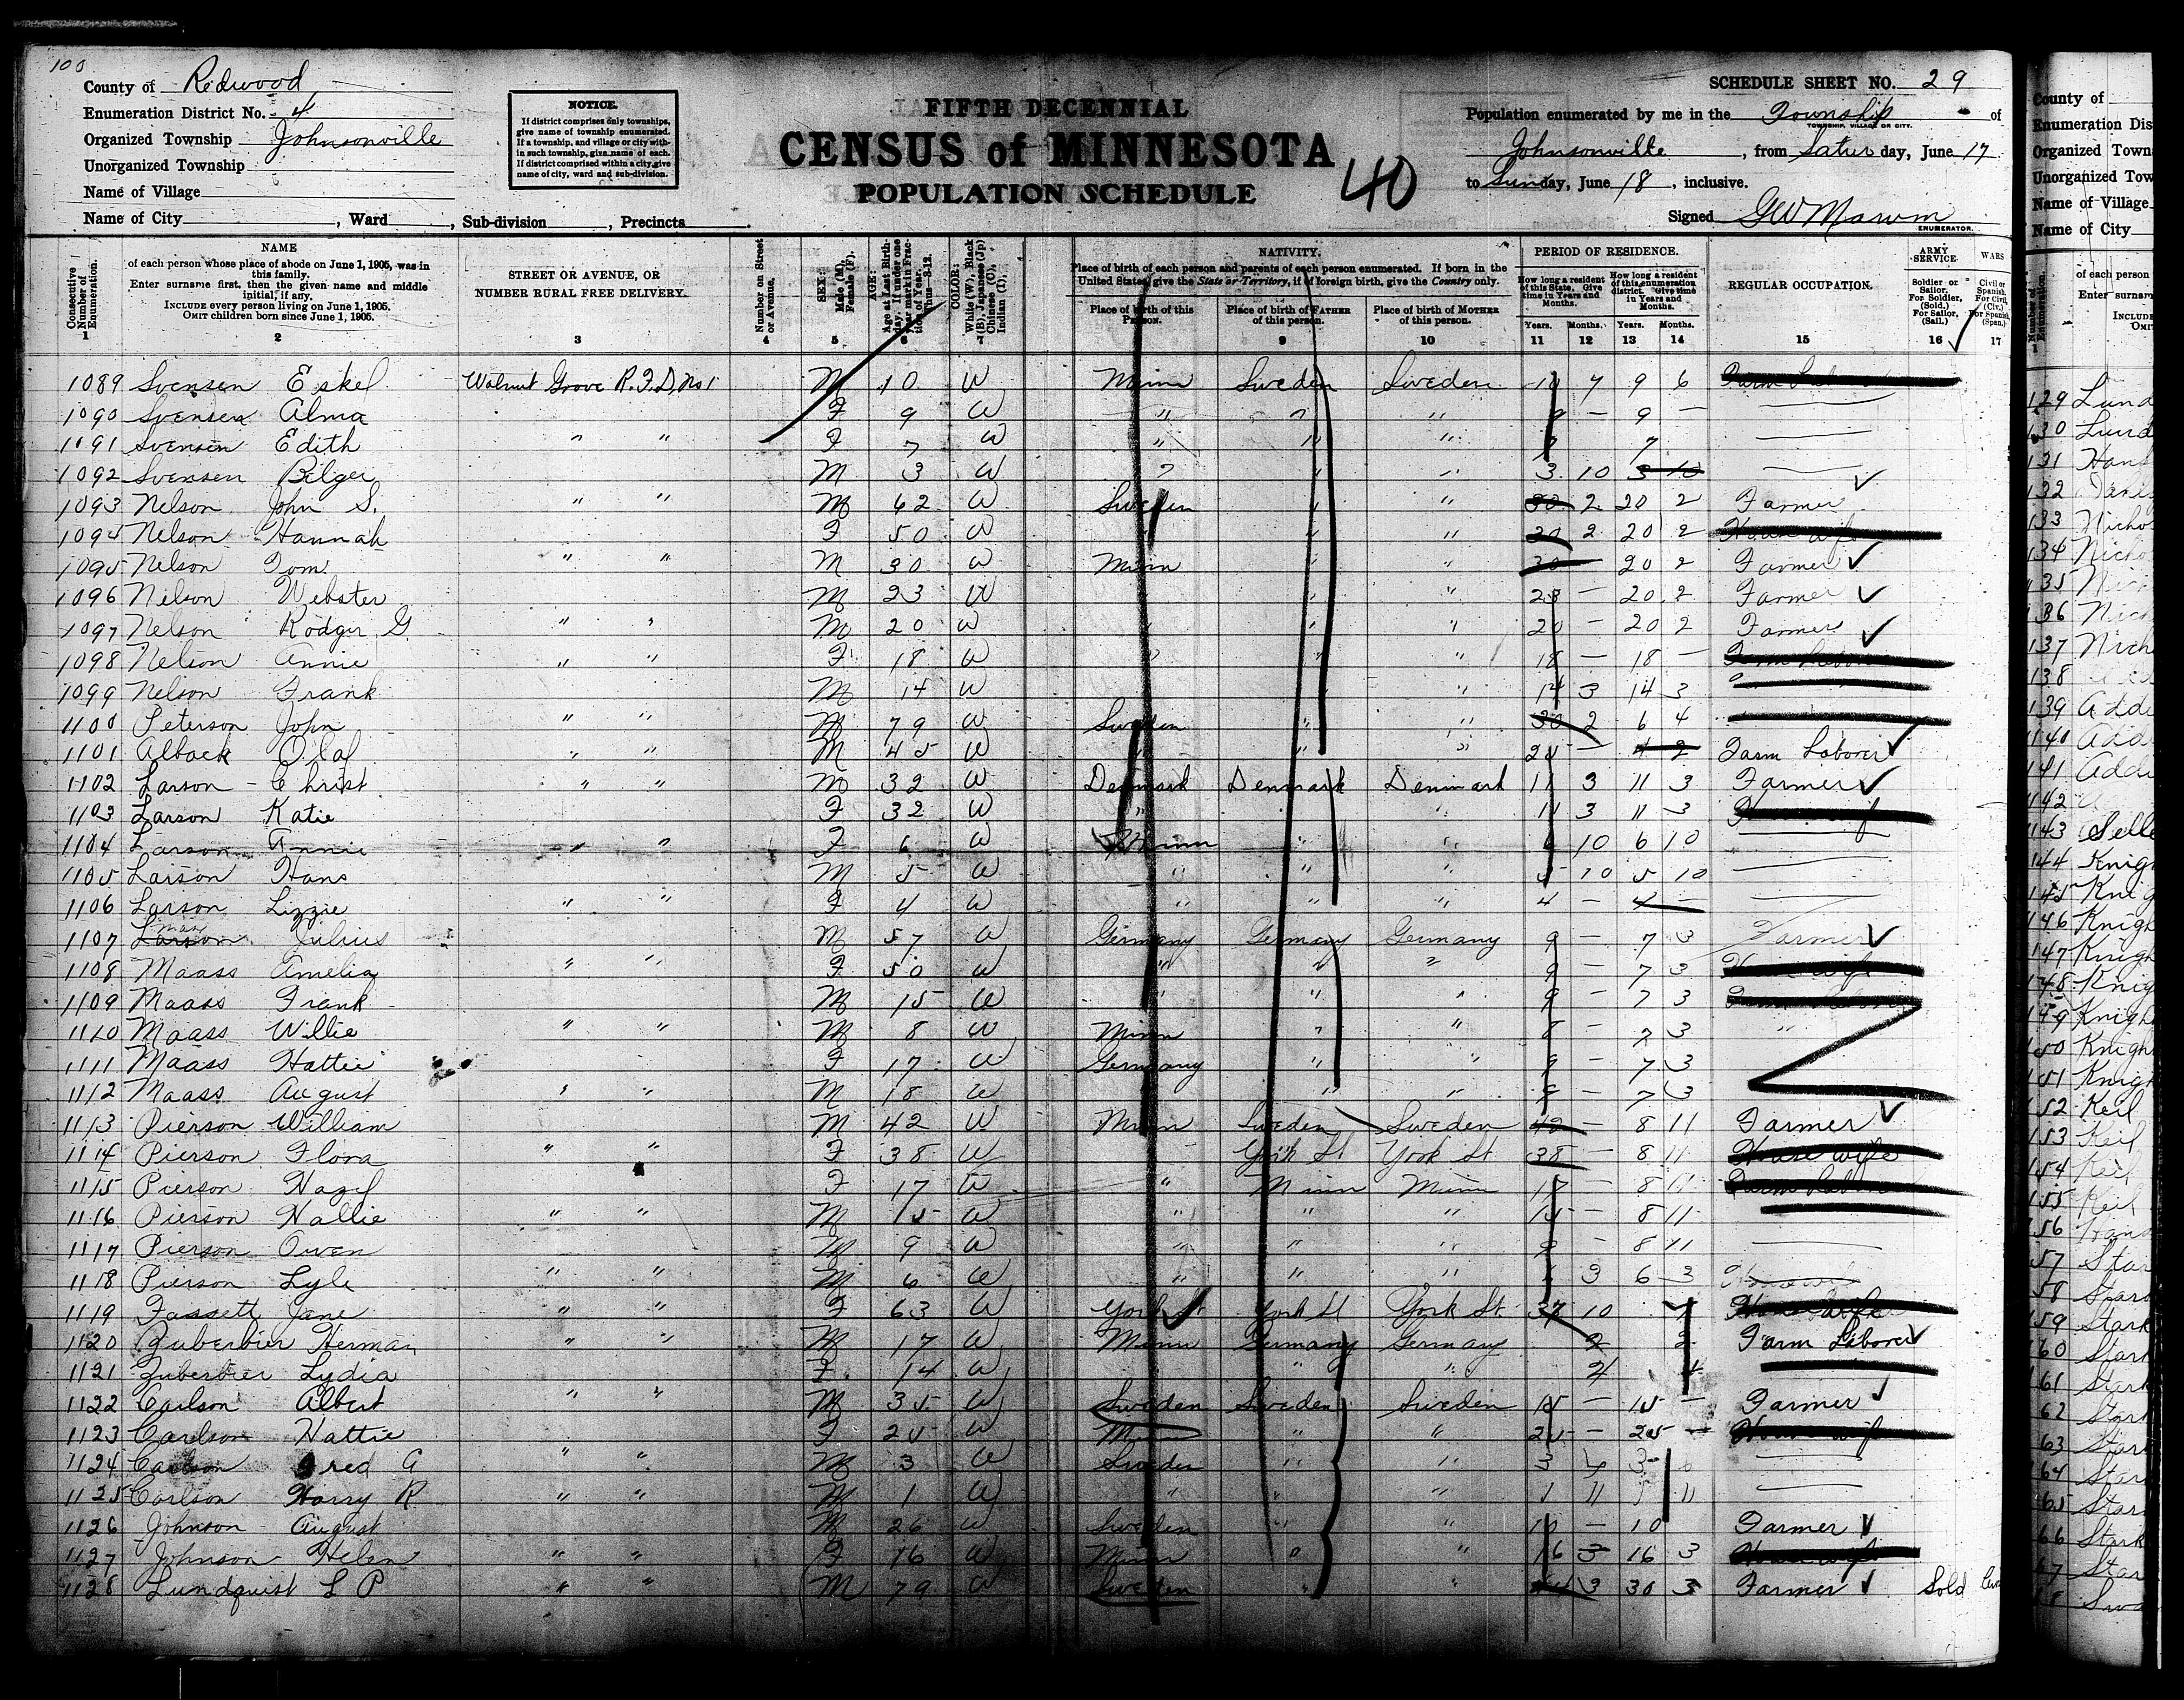 100
County of Redwood
Enumeration District No. 4
Organized Township Johnsonville
Unorganized Township
Name of Village
Name of City , Ward , Sub-division , Precincts .
NOTICE.
If district comprises only townships, give name of township enumerated. If a township, and village or city within such township, give name of each. If district comprised within a city, give name of city, ward and sub-division.
FIFTH DECENNIAL
CENSUS of MINNESOTA
POPULATION SCHEDULE
40
SCHEDULE SHEET NO. 29
Population enumerated by me in the Township of
TOWNSHIP, VILLAGE OR CITY.
Johnsonville , from Saturday, June 17
to Sunday, June 18, inclusive.
Signed G W Marvin
ENUMERATOR.
Consecutive Number of Enumeration. 1
NAME of each person whose place of abode on June 1, 1905, was in this family. Enter surname first, then the given name and middle initial, if any. INCLUDE every person living on June 1, 1905. OMIT children born since June 1, 1905. 2
STREET OR AVENUE, OR NUMBER RURAL FREE DELIVERY. 3
Number on Street or Avenue. 4
SEX: Male (M), Female (F). 5
AGE: Age at Last Birthday. If under one year mark in Fraction of Year. Thus—3-12. 6
COLOR: White (W), Black (B), Japanese (Jp) Chinese (C), Indian (I). 7
NATIVITY.
Place of birth of each person and parents of each person enumerated. If born in the United States, give the State or Territory, if of foreign birth, give the Country only.
Place of birth of this Person. 8
Place of birth of FATHER of this person. 9
Place of birth of MOTHER of this person. 10
PERIOD OF RESIDENCE.
How long a resident of this State. Give time in Years and Months.
How long a resident of this enumeration district. Give time in Years and Months.
Years. 11 Months. 12 Years. 13 Months. 14
REGULAR OCCUPATION. 15
ARMY SERVICE. Soldier or Sailor. For Soldier, (Sold.) For Sailor, (Sail.) 16
WARS 17
1089 Svensen Eskel Walnut Grove R.F.D. No 1 M 10 W Minn Sweden Sweden 10 7 9 6
1090 Svensen Alma F 9 W " " " 9 – 9 –
1091 Svensen Edith " " F 7 W " " " 7 7
1092 Svensen Bilger M 3 W " " " 3 10 3 10
1093 Nelson John S. " " M 62 W Sweden " " 30 2 20 2 Farmer
1094 Nelson Hannah F 50 W " " 20 2 20 2 House wife
1095 Nelson Tom " " M 30 W Minn " " 30 – 20 2 Farmer
1096 Nelson Webster M 23 W " " 23 – 20 2 Farmer
1097 Nelson Rodger G. " " M 20 W " " " 20 – 20 2 Farmer
1098 Nelson Annie " " F 18 W " " " 18 – 18 –
1099 Nelson Frank M 14 W " 14 3 14 3
1100 Peterson John " " M 79 W Sweden " " 30 2 6 4
1101 Alback Olaf " " M 45 W " " " 25 – 4 2 Farm Laborer
1102 Larson Christ " " M 32 W Denmark Denmark Denmark 11 3 11 3 Farmer
1103 Larson Katie F 32 W " " 11 3 11 3
1104 Larson Annie " " F 6 W Minn " " 6 10 6 10
1105 Larson Hans M 5 W " " " 5 10 5 10
1106 Larson Lizzie " " F 4 W " " " 4 – 4 –
1107 Larson Maas Julius M 57 W Germany Germany Germany 9 – 7 3 Farmer
1108 Maass Amelia " " F 50 W " " " 9 – 7 3 House wife
1109 Maass Frank M 15 W " " " 9 – 7 3
1110 Maass Willie " " M 8 W Minn " " 8 – 7 3
1111 Maass Hattie F 17 W Germany " " 9 – 7 3
1112 Maass August " " M 18 W " " 9 – 7 3
1113 Pierson William M 42 W Minn Sweden Sweden 42 – 8 11 Farmer
1114 Pierson Flora " " F 38 W York St York St 38 – 8 11 House wife
1115 Pierson Hazel F 17 W " Minn Minn 17 – 8 11
1116 Pierson Hallie " " M 15 W " " " 15 – 8 11
1117 Pierson Owen M 9 W " " " 9 – 8 11
1118 Pierson Lyle " " M 6 W " " " 6 3 6 3
1119 Fassett Jane " " F 63 W York St York St York St. 37 10
1120 Zuberbier Herman " " M 17 W Minn Germany Germany 2 2 Farm Laborer
1121 Zuberbier Lydia F 14 W " " " 4
1122 Carlson Albert " " M 35 W Sweden Sweden Sweden 15 – 15 – Farmer
1123 Carlson Hattie F 25 W Minn " " 25 – 25 – House wife
1124 Carlson Fred G " " M 3 W Sweden " " 3 4 3
1125 Carlson Harry R " " M 1 W " " " 1 11 1 11
1126 Johnson August M 26 W Sweden " " 10 – 10 Farmer
1127 Johnson Helen " " F 16 W Minn " " 16 3 16 3
1128 Lundquist L P " " M 79 W Sweden " " 3 30 3 Farmer Sold
County of
Name of Village
Name of City